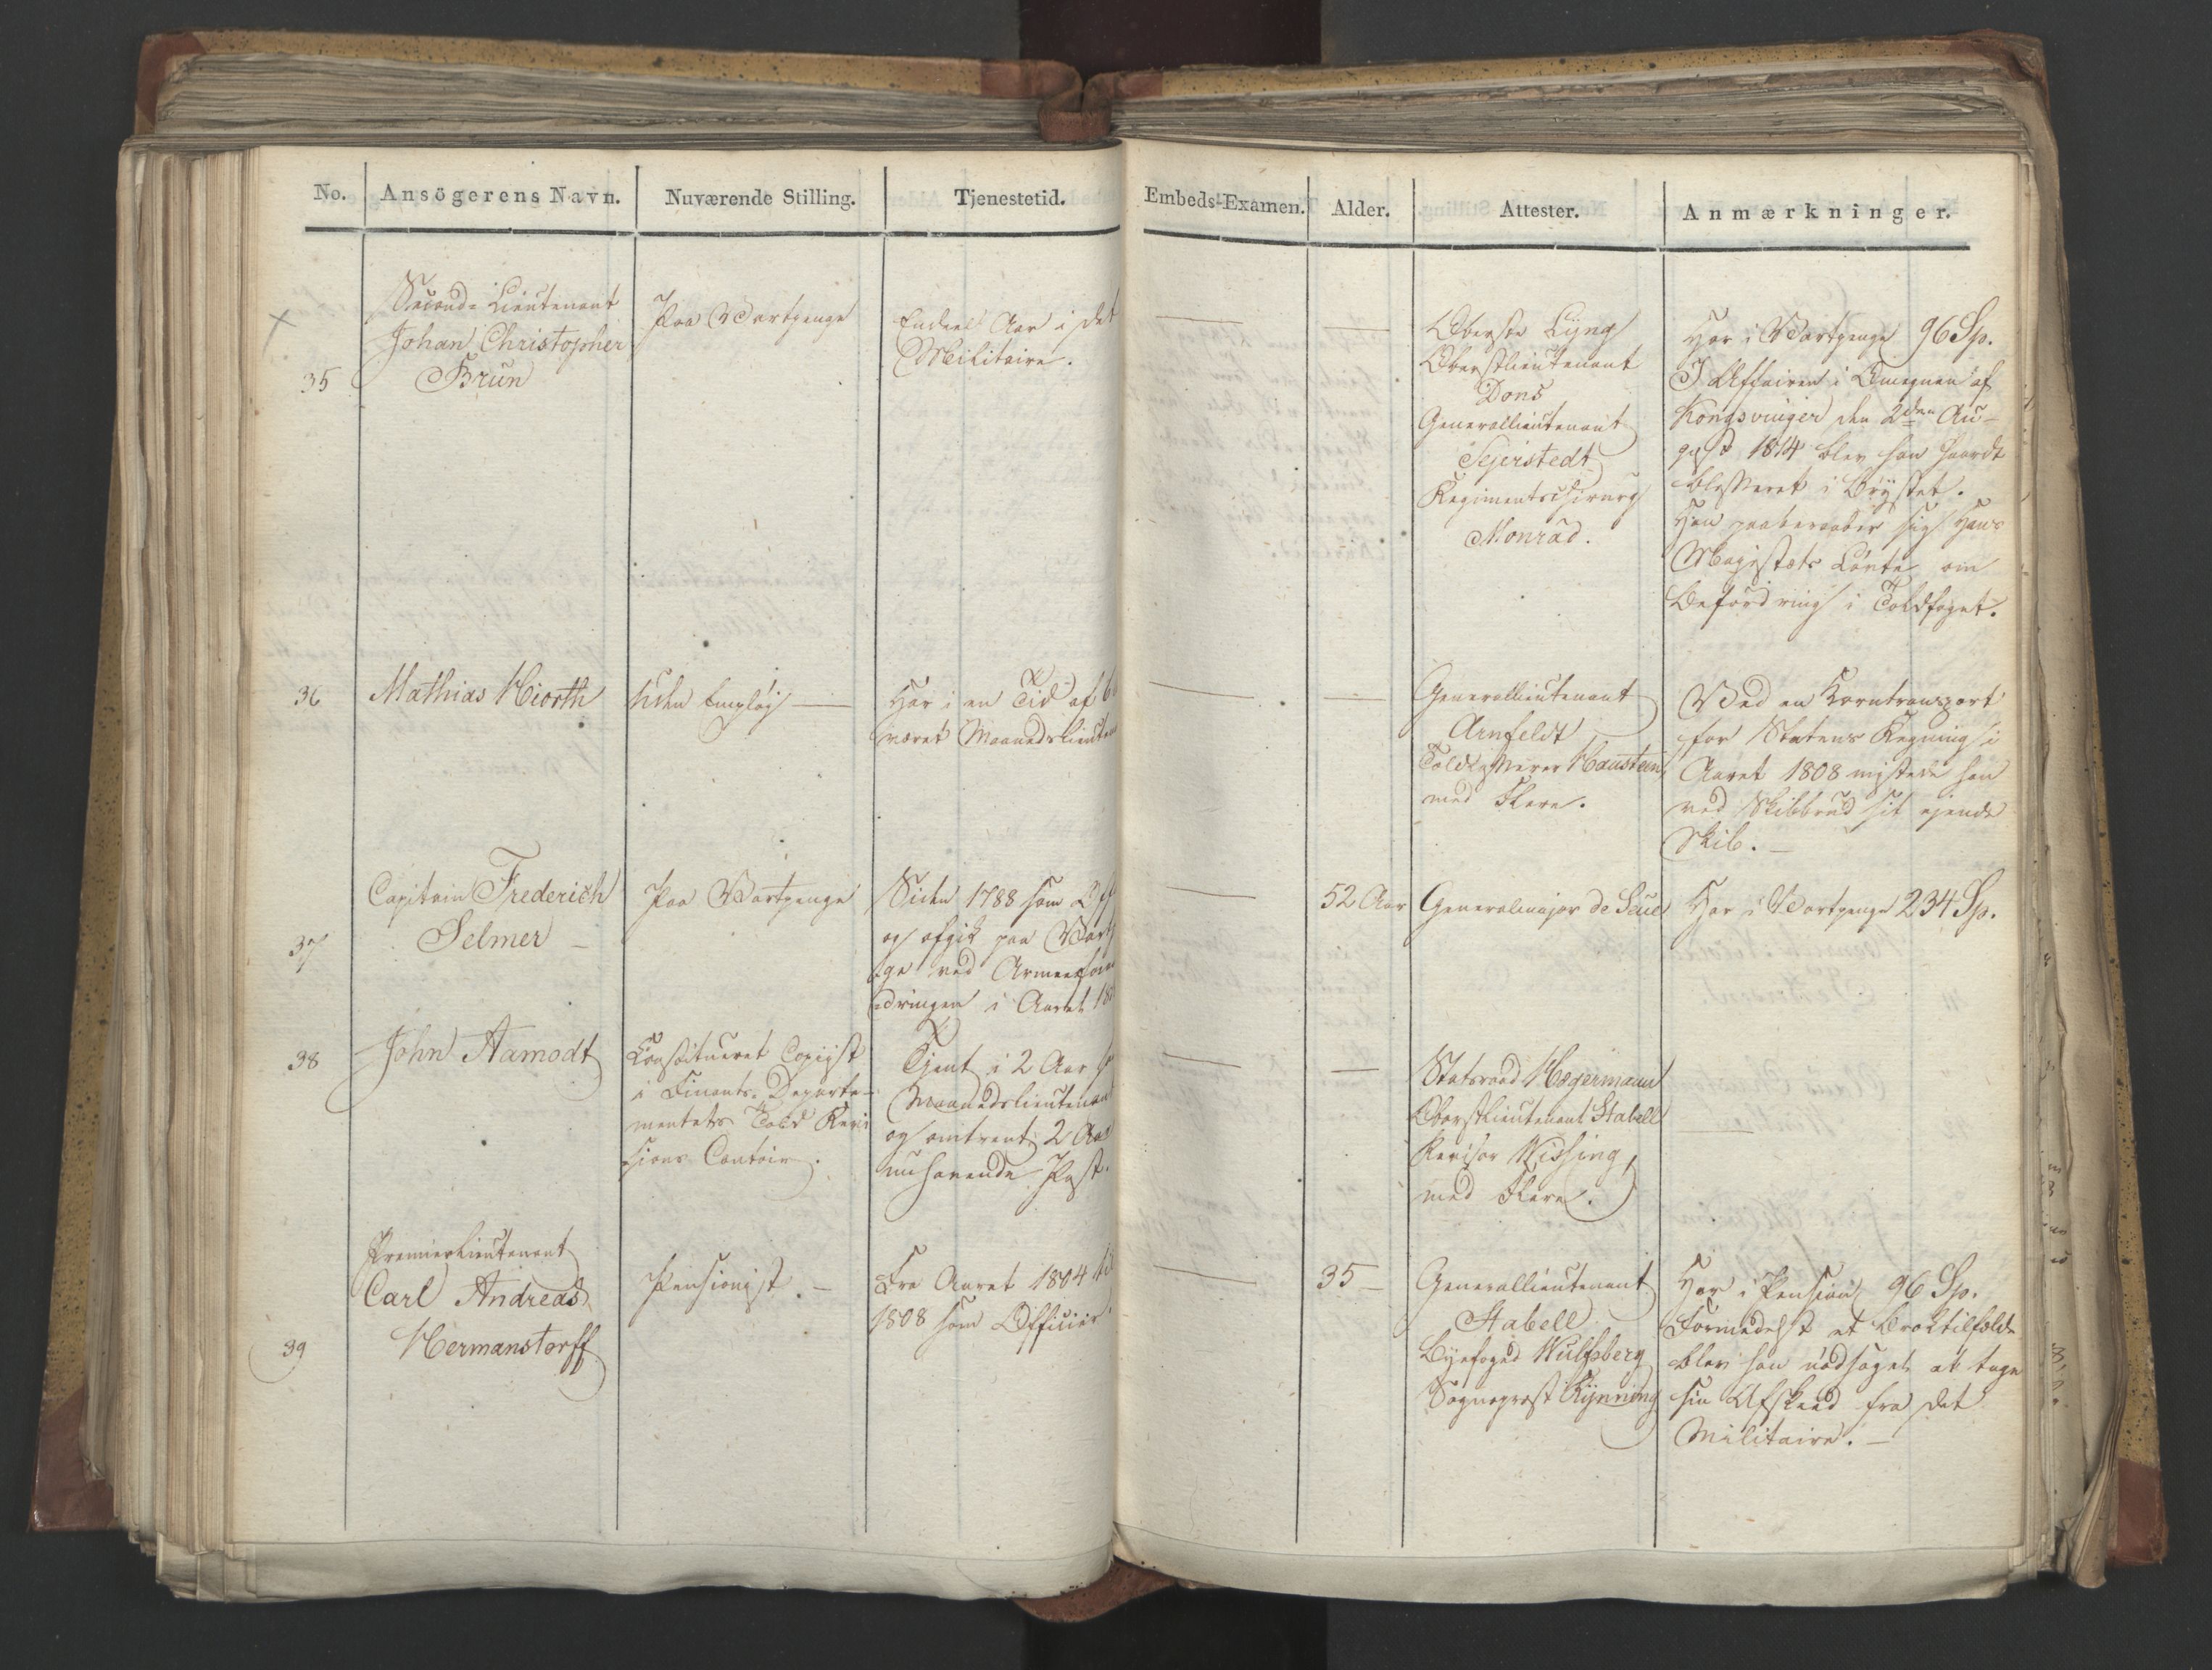 No. Ansögerens Navn. Nuværende Stilling. Tjenestetid. Embeds-Examen. Alder. Attester. Anmærkninger.
35
Second-Lieutenant
Johan Christopher
Brun
Paa Vartpenge
Endeel Aar i det
Militaire.
Oberste Lyng
Oberstlieutenant
Dons
Generallieutenant
Sejerstedt
Regimentschirurg
Monrad.
Har i Vartpenge 96 Sp.
I Affairen i Omegnen af
Kongsvinger den 2den Au-
gust 1814 blev han haardt
blesseret i Brystet.
Han paaberaaber sig Hans
Majestæts Løvte om
Befordring i Toldfaget.
36
Mathias Hiorth
Uden Employ
Har i en Tid af 6
været Maanedslieuten
Generallieutenant
Arnfeldt
Toldkasserer Hanstein
med Flere.
Ved en Korntransport
for Statens Regning i
Aaret 1808 mistede han
ved Skibbrud sit ejende
Skib.
37
Capitain Frederich
Selmer
Paa Vartpenge
Siden 1788 som Off
og afgik paa Vart
ge ved Armeefor
dringen i Aaret 18
52 Aar
Generalmajor de Seue
Har i Vartpenge 234 Sp.
38
John Aamodt
Constitueret Copiist
i Finants-Departe-
mentets Told Revi
sions Contoir.
Tjent i 2 Aar
Maanedslieutenant
og omtrent 2 Aar
nuhavende Post.
Statsraad Hegermann
Oberstlieutenant Stabell
Revisor Wissing,
med Flere.
39
Premierlieutenant
Carl Andreas
Hermanstorff
Pensionist.
Fra Aaret 1804 til
1808 som Officier
35
Generallieutenant
Stabell
Byefoged Wulfsberg
Sognepræst Rynning
Har i Pension 96 Sp.
Formedelst et Broktilfælde
blev han nødsaget at tage
sin Afskeed fra det
Militaire.